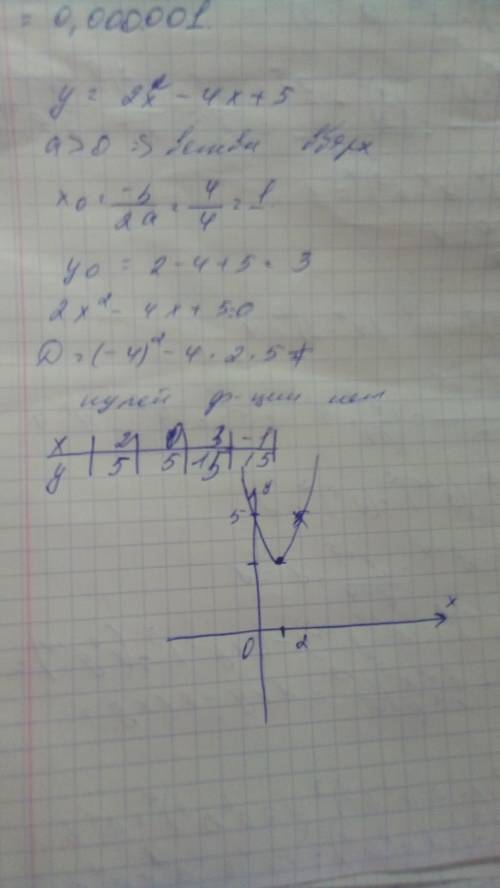 = 0,000001
y = 2x² - 4x + 5
a > 0 => ветви вверх
x₀ = -b/2a = 4/4 = 1
y₀ = 2 - 4 + 5 = 3
2x² - 4x + 5 = 0
D = (-4)² - 4 · 2 · 5
нулей ф-ции нет
x | 2 | 0 | 3 | -1 |
y | 5 | 5 | 15 | 15 |
y
5
x
0 2